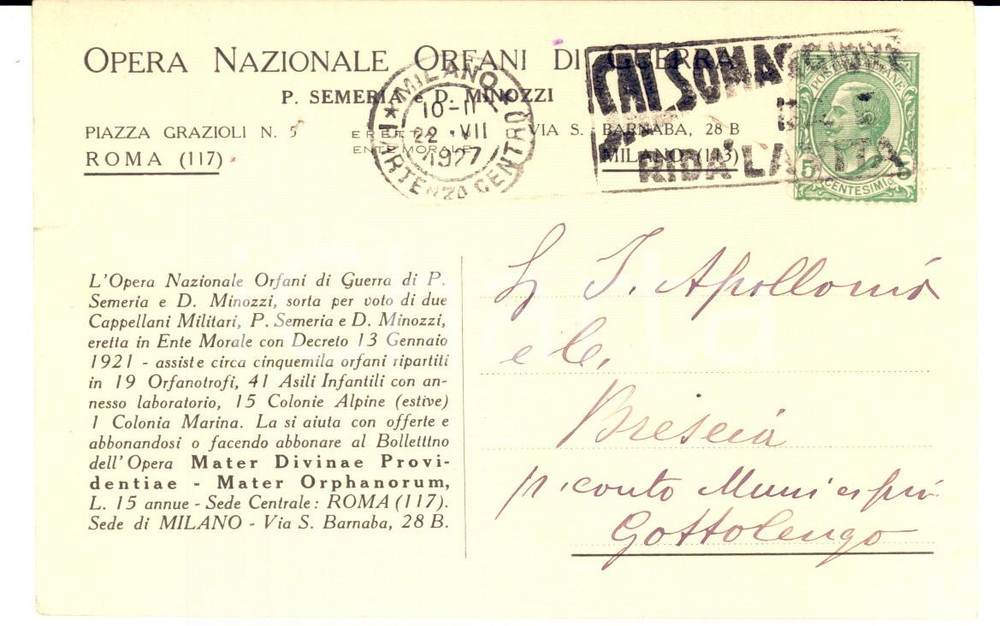 OPERA NAZIONALE ORFANI DI GUERRA
P. SEMERIA e D. MINOZZI
PIAZZA GRAZIOLI N. 5
ROMA (117)
ERETTA
ENTE MORALE
VIA S. BARNABA, 28 B
MILANO (113)
MILANO
PARTENZA CENTRO
10-11
22 · VII
1927
CHI SOMA
RIDA' LA
POSTE ITALIANE
5 CENTESIMI 5
L'Opera Nazionale Orfani di Guerra di P.
Semeria e D. Minozzi, sorta per voto di due
Cappellani Militari, P. Semeria e D. Minozzi,
eretta in Ente Morale con Decreto 13 Gennaio
1921 - assiste circa cinquemila orfani ripartiti
in 19 Orfanotrofi, 41 Asili Infantili con an-
nesso laboratorio, 15 Colonie Alpine (estive)
1 Colonia Marina. La si aiuta con offerte e
abbonandosi o facendo abbonare al Bolletttno
dell'Opera Mater Divinae Provi-
dentiae - Mater Orphanorum,
L. 15 annue - Sede Centrale: ROMA (117).
Sede di MILANO - Via S. Barnaba, 28 B.
Apollonio
e C.
Brescia
p. conto Municipio
Gottolengo